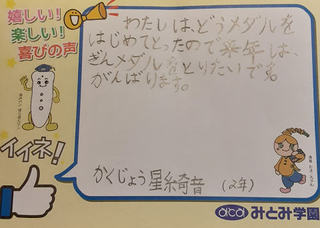 嬉しい!
楽しい!
喜びの声
わたしは、どうメダルを
はじめてとったので来年は、
ぎんメダルをとりたいです。
がんばります。
イイネ!
かくじょう 星 綺音 (2年)
ata みとみ学園